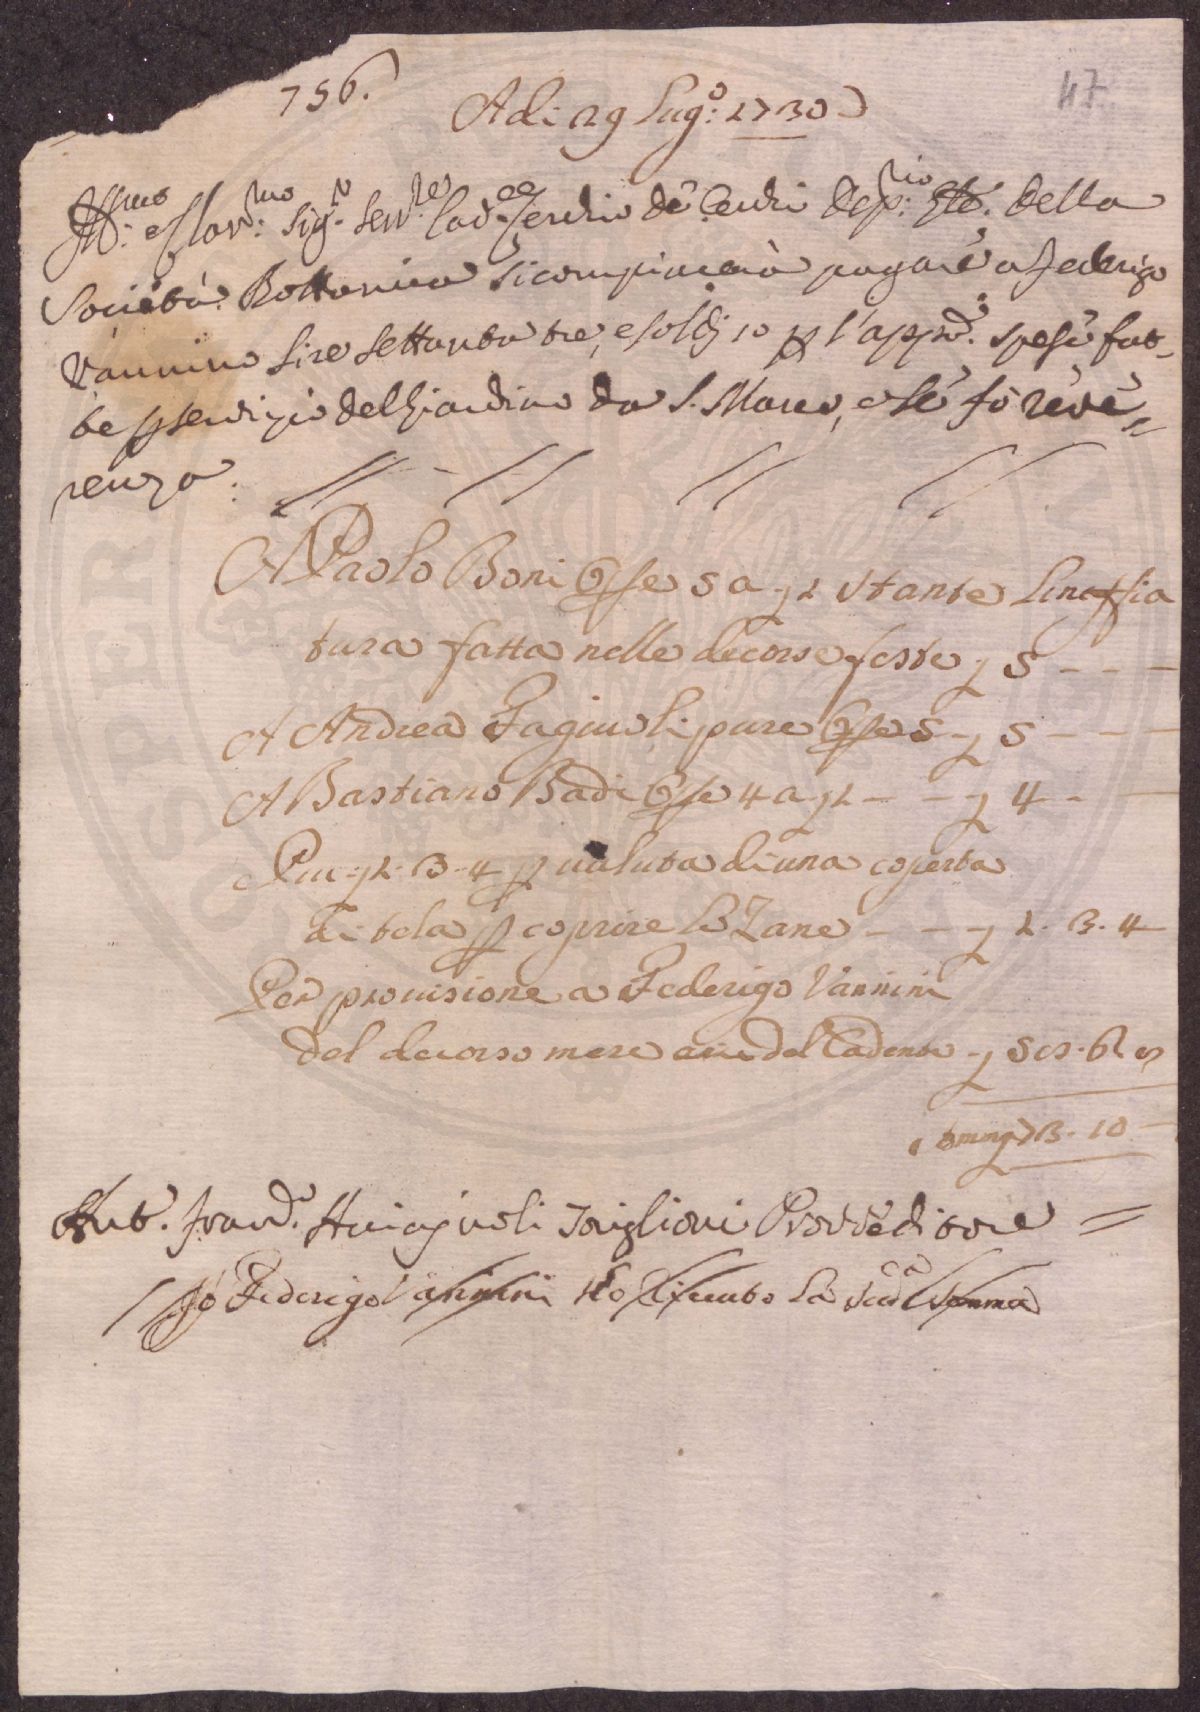 756.
47
Adi 29 Lug.o 1730
Ill.mo e Clar.mo Sig.r Sen.re Cerchio de Cerchi Dep.rio &c. della
Società Bottanica si compiacerà pagare a Federigo
Vannini lire settanta tre, e soldi 10 p l'appro. spese fat-
te p servizio del Giardino da S. Marco, e le fò reve=
renza.
A Paolo Boni Opre 5 a £ 1 stante l'inaffia
tura fatta nelle decorse feste £ 5 - - -
A Andrea Fagiuoli pure Opre 5 - £ 5 - - -
A Bastiano Badi Opre 4 a £ 1 - - - £ 4 - -
Piu £ 1. 3. 4 p valuta di una coperta
di tela p coprire le Zane - - - £ 1. 3. 4
Per provisione a Federigo Vannini
del decorso mese del Cadente - £ 58. 6. 8
£ 73. 10 -
Ant. Franc. Provveditore =
Io Federigo Vannini ho riceuto la sud.a somma
PER